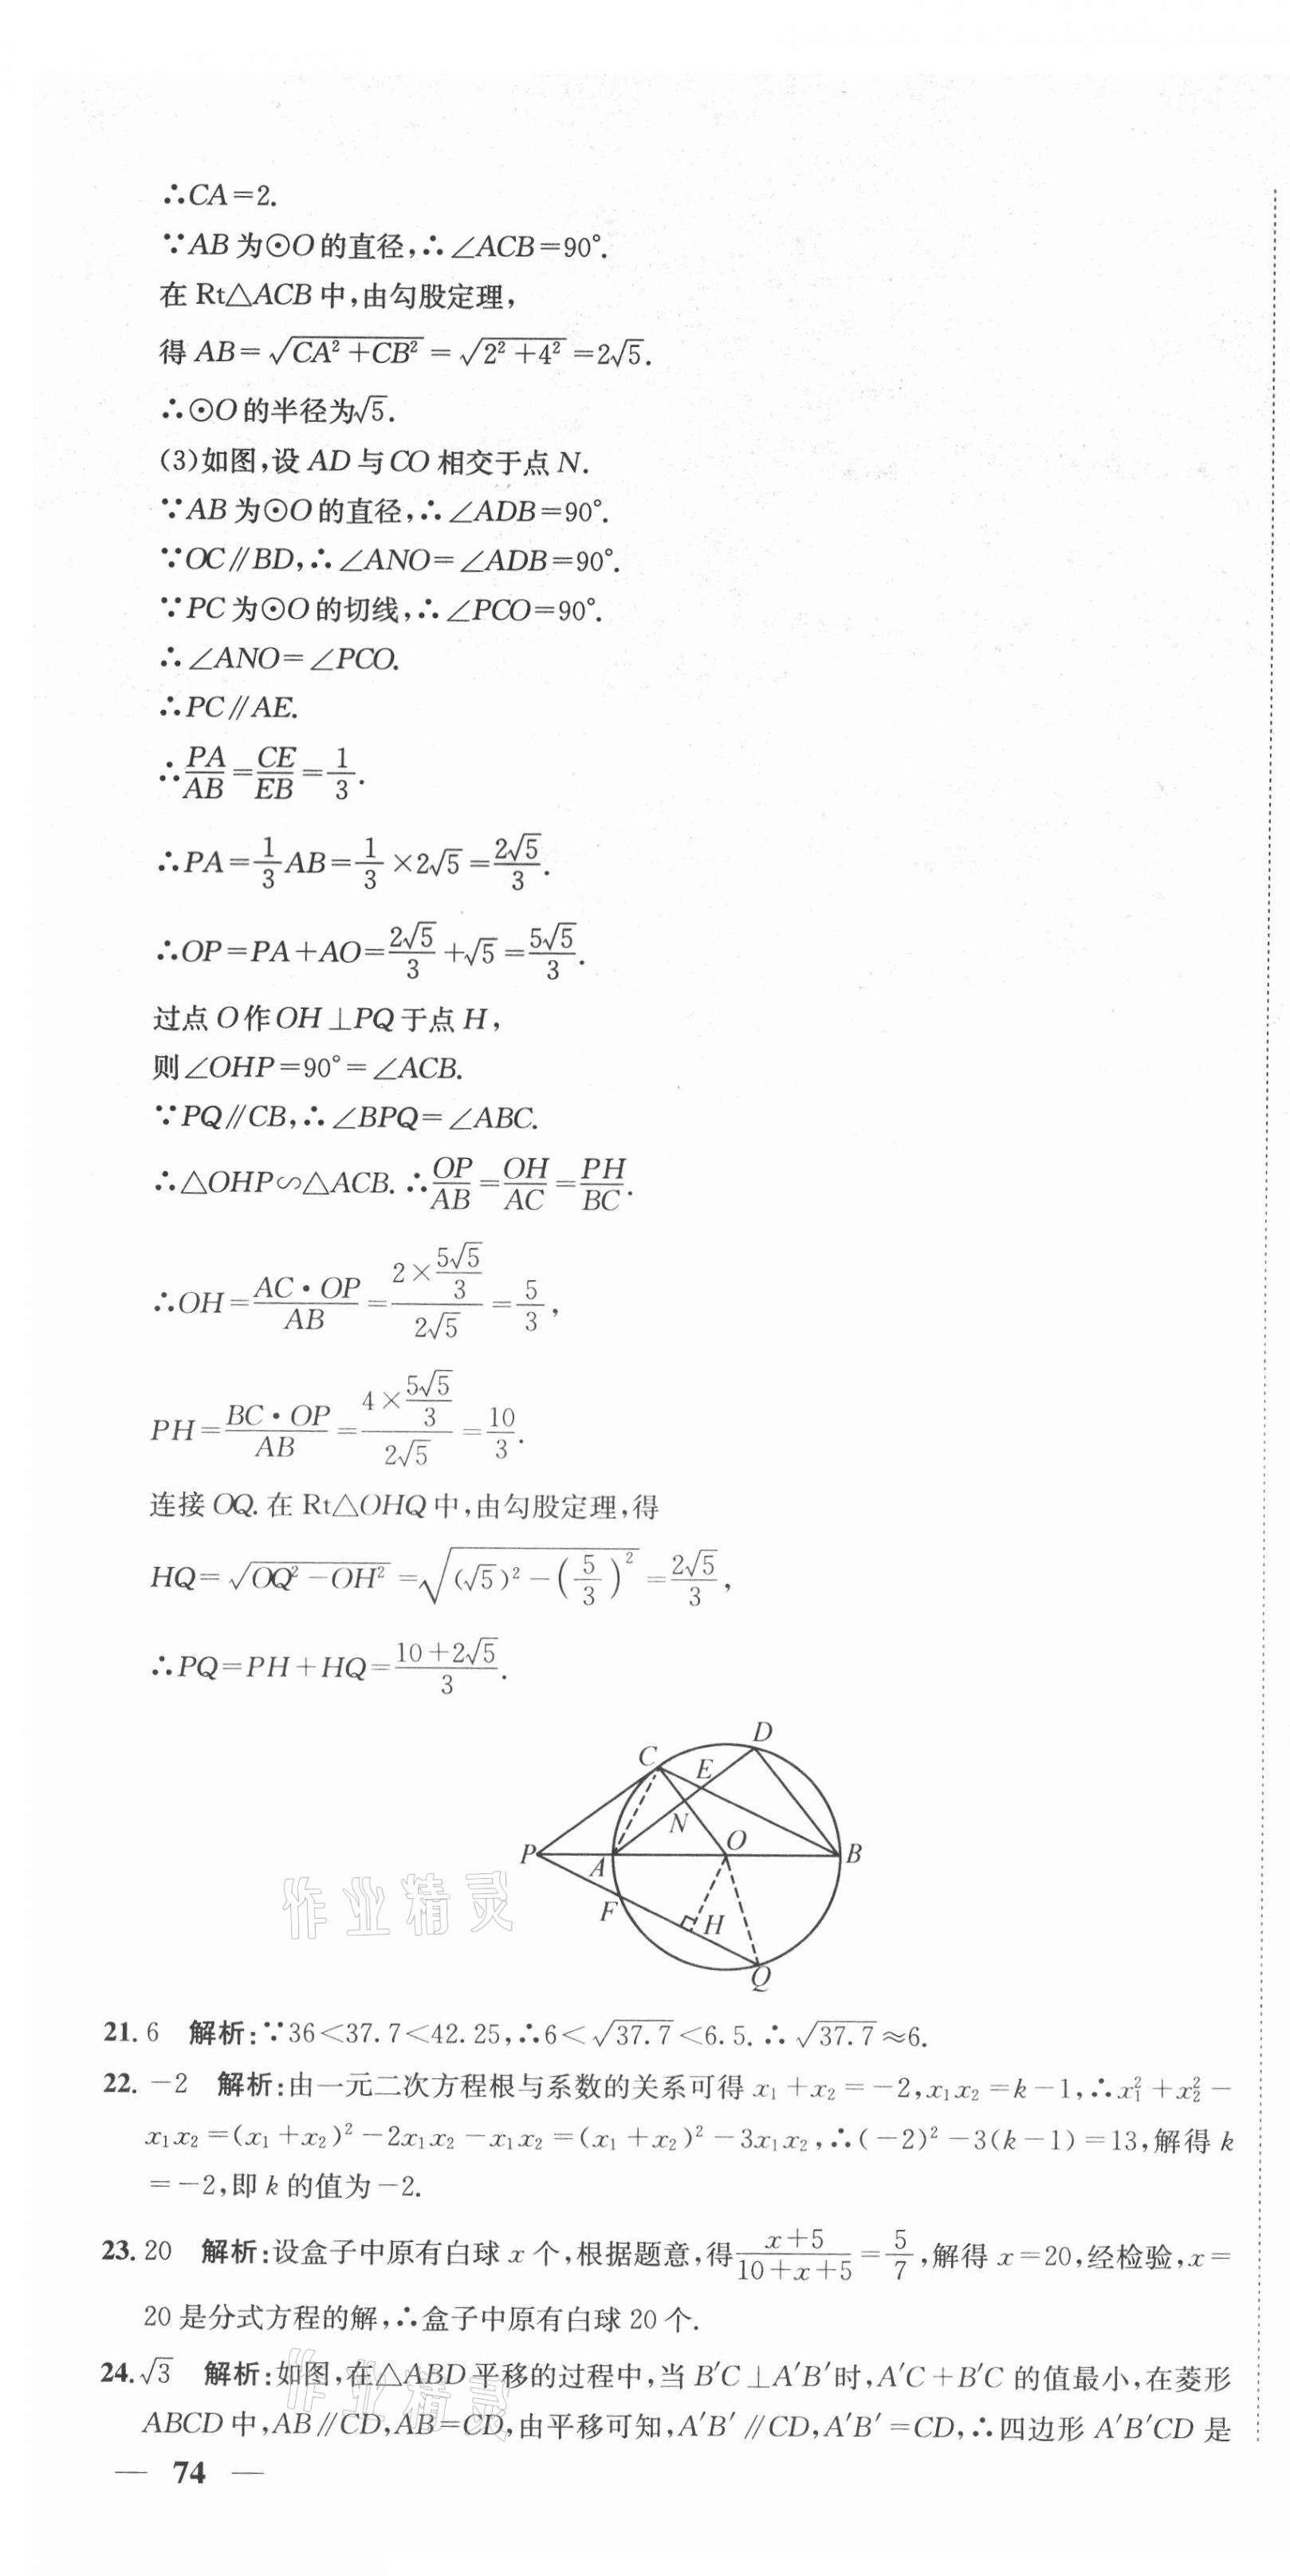 ∴CA=2.
∵AB为⊙O的直径,∴∠ACB=90°.
在Rt△ACB中,由勾股定理,
得AB=√(CA²+CB²)=√(2²+4²)=2√5.
∴⊙O的半径为√5.
(3)如图,设AD与CO相交于点N.
∵AB为⊙O的直径,∴∠ADB=90°.
∵OC∥BD,∴∠ANO=∠ADB=90°.
∵PC为⊙O的切线,∴∠PCO=90°.
∴∠ANO=∠PCO.
∴PC∥AE.
∴PA/AB=CE/EB=1/3.
∴PA=1/3AB=1/3×2√5=2√5/3.
∴OP=PA+AO=2√5/3+√5=5√5/3.
过点O作OH⊥PQ于点H,
则∠OHP=90°=∠ACB.
∵PQ∥CB,∴∠BPQ=∠ABC.
∴△OHP∽△ACB.∴OP/AB=OH/AC=PH/BC.
∴OH=AC·OP/AB=(2×5√5/3)/(2√5)=5/3,
PH=BC·OP/AB=(4×5√5/3)/(2√5)=10/3.
连接OQ.在Rt△OHQ中,由勾股定理,得
HQ=√(OQ²-OH²)=√((√5)²-(5/3)²)=2√5/3,
∴PQ=PH+HQ=(10+2√5)/3.
D
C
E
N
O
P
A
B
F
H
Q
作业精灵
21. 6 解析:∵36<37.7<42.25,∴6<√37.7<6.5.∴√37.7≈6.
22. -2 解析:由一元二次方程根与系数的关系可得x₁+x₂=-2,x₁x₂=k-1,∴x₁²+x₂²-
x₁x₂=(x₁+x₂)²-2x₁x₂-x₁x₂=(x₁+x₂)²-3x₁x₂,∴(-2)²-3(k-1)=13,解得k
=-2,即k的值为-2.
23. 20 解析:设盒子中原有白球x个,根据题意,得(x+5)/(10+x+5)=5/7,解得x=20,经检验,x=
20是分式方程的解,∴盒子中原有白球20个.
24. √3 解析:如图,在△ABD平移的过程中,当B′C⊥A′B′时,A′C+B′C的值最小,在菱形
ABCD中,AB∥CD,AB=CD,由平移可知,A′B′∥CD,A′B′=CD,∴四边形A′B′CD是
作业精灵
— 74 —